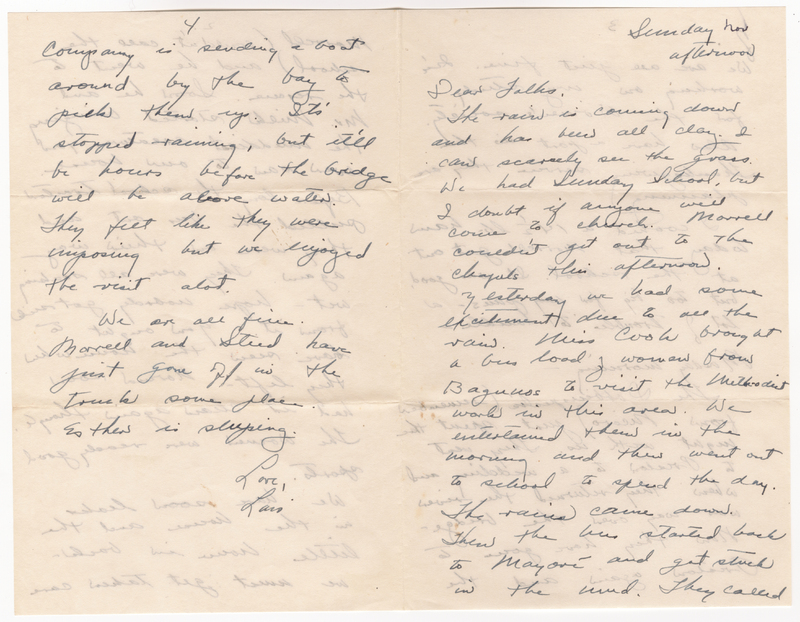 4
Company is sending a boat
around by the bay to
pick them up. It's
stopped raining, but it'll
be hours before the bridge
will be above water.
They felt like they were
imposing but we enjoyed
the visit alot.
We are all fine.
Morrell and Stud have
just gone off in the
truck some place.
Esther is sleeping.
Love,
Lois
Sunday Nov
afternoon
Dear Folks,
The rain is coming down
and has been all day. I
can scarcely see the grass.
We had Sunday School, but
I doubt if anyone will
come to church. Morrell
couldn't get out to the
chapels this afternoon.
Yesterday we had some
excitement due to all the
rain. Miss Cook brought
a bus load of women from
Baguanos to visit the Methodist
work in this area. We
entertained them in the
morning and then went out
to school to spend the day.
The rains came down.
Then the bus started back
to Mayarí and got stuck
in the mud. They called